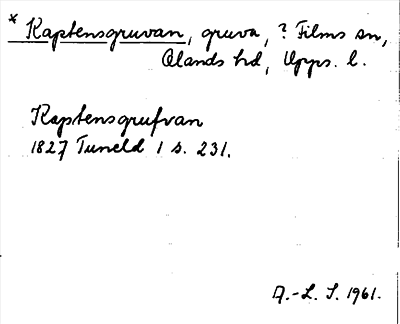 * Kaptensgruvan, gruva, ? Films sn,
Olands hd, Upps. l.
Kaptensgrufvan
1827 Tuneld 1 s. 231.
A.-L. S. 1961.